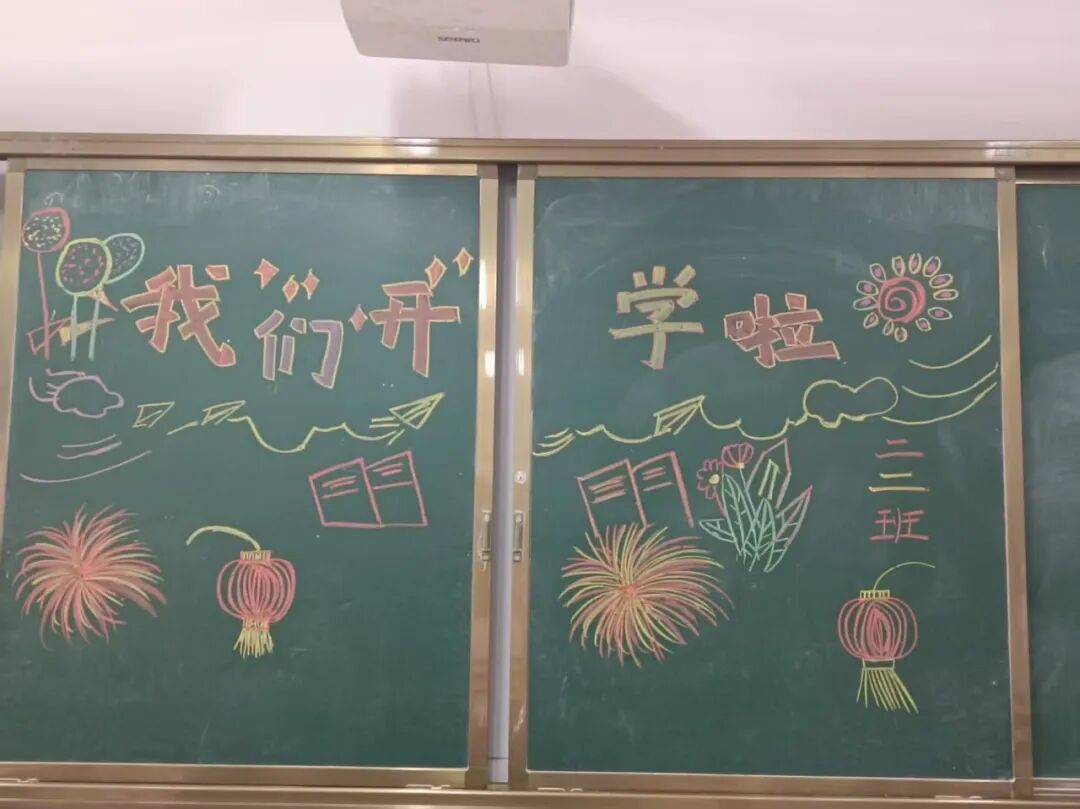 我们开学啦
二三班